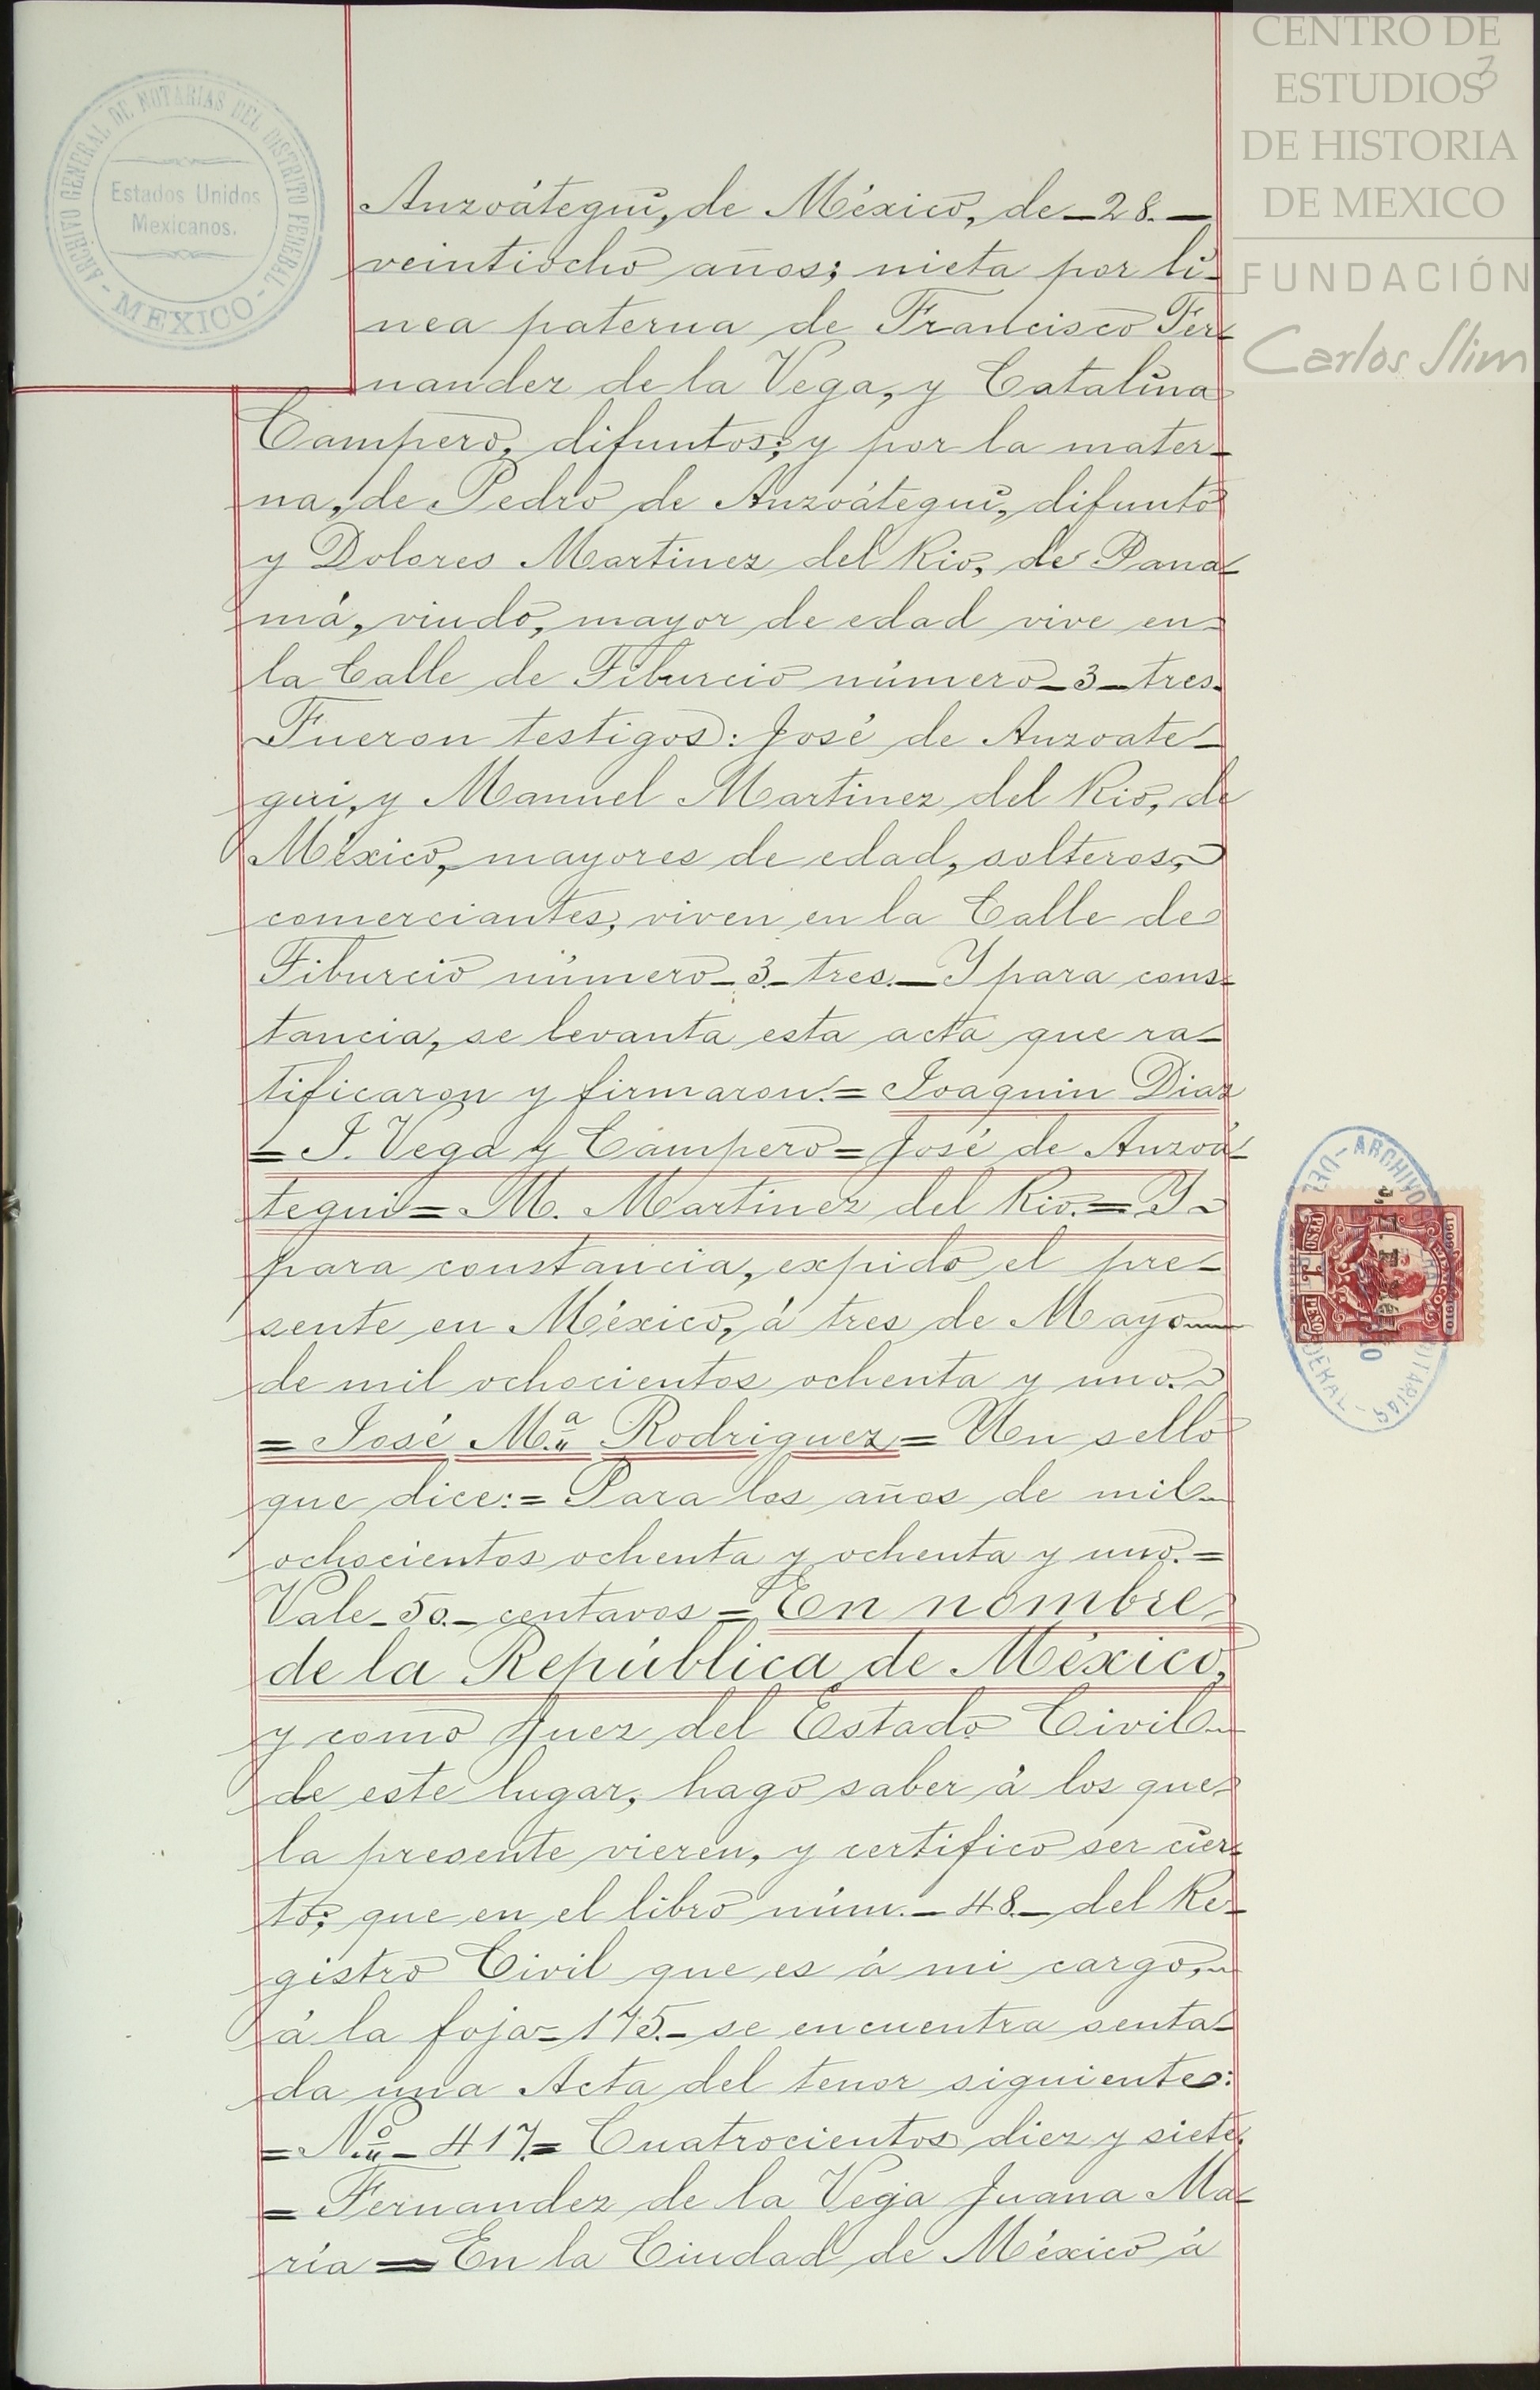 CENTRO DE
ESTUDIOS
DE HISTORIA
DE MEXICO
FUNDACIÓN
Carlos Slim
3
ARCHIVO GENERAL DE NOTARIAS DEL DISTRITO FEDERAL
- MEXICO -
Estados Unidos
Mexicanos.
Anzoátegui, de México, de _ 28. _
veintiocho años; nieta por lí-
nea paterna de Francisco Fer-
nandez de la Vega, y Catalina
Campero, difuntos; y por la mater-
na, de Pedro de Anzoátegui, difunto
y Dolores Martinez del Rio, de Pana-
má, viudo, mayor de edad vive en-
la Calle de Tiburcio número _ 3 _ tres.
Fueron testigos: José de Anzoate-
gui, y Manuel Martinez del Rio, de
México, mayores de edad, solteros,
comerciantes, viven en la Calle de
Tiburcio número _ 3 _ tres. _ Y para cons-
tancia, se levanta esta acta que ra-
tificaron y firmaron. = Joaquin Diaz
= J. Vega y Campero = José de Anzoá-
tegui = M. Martinez del Rio. = Y
para constancia, expido el pre-
sente en México, á tres de Mayo
de mil ochocientos ochenta y uno.
= José M.ª Rodriguez = Un sello
que dice: = Para los años de mil
ochocientos ochenta y ochenta y uno. =
Vale _ 50. _ centavos = En nombre
de la República de México,
y como Juez del Estado Civil
de este lugar, hago saber á los que
la presente vieren, y certifico ser cier-
to; que en el libro núm. _ 48 _ del Re-
gistro Civil que es á mi cargo,
á la foja _ 175. _ se encuentra senta-
da una Acta del tenor siguiente:
= N.º _ 417 = Cuatrocientos diez y siete.
= Fernandez de la Vega Juana Ma-
ría = En la Ciudad de México á
PESO 1 PESO